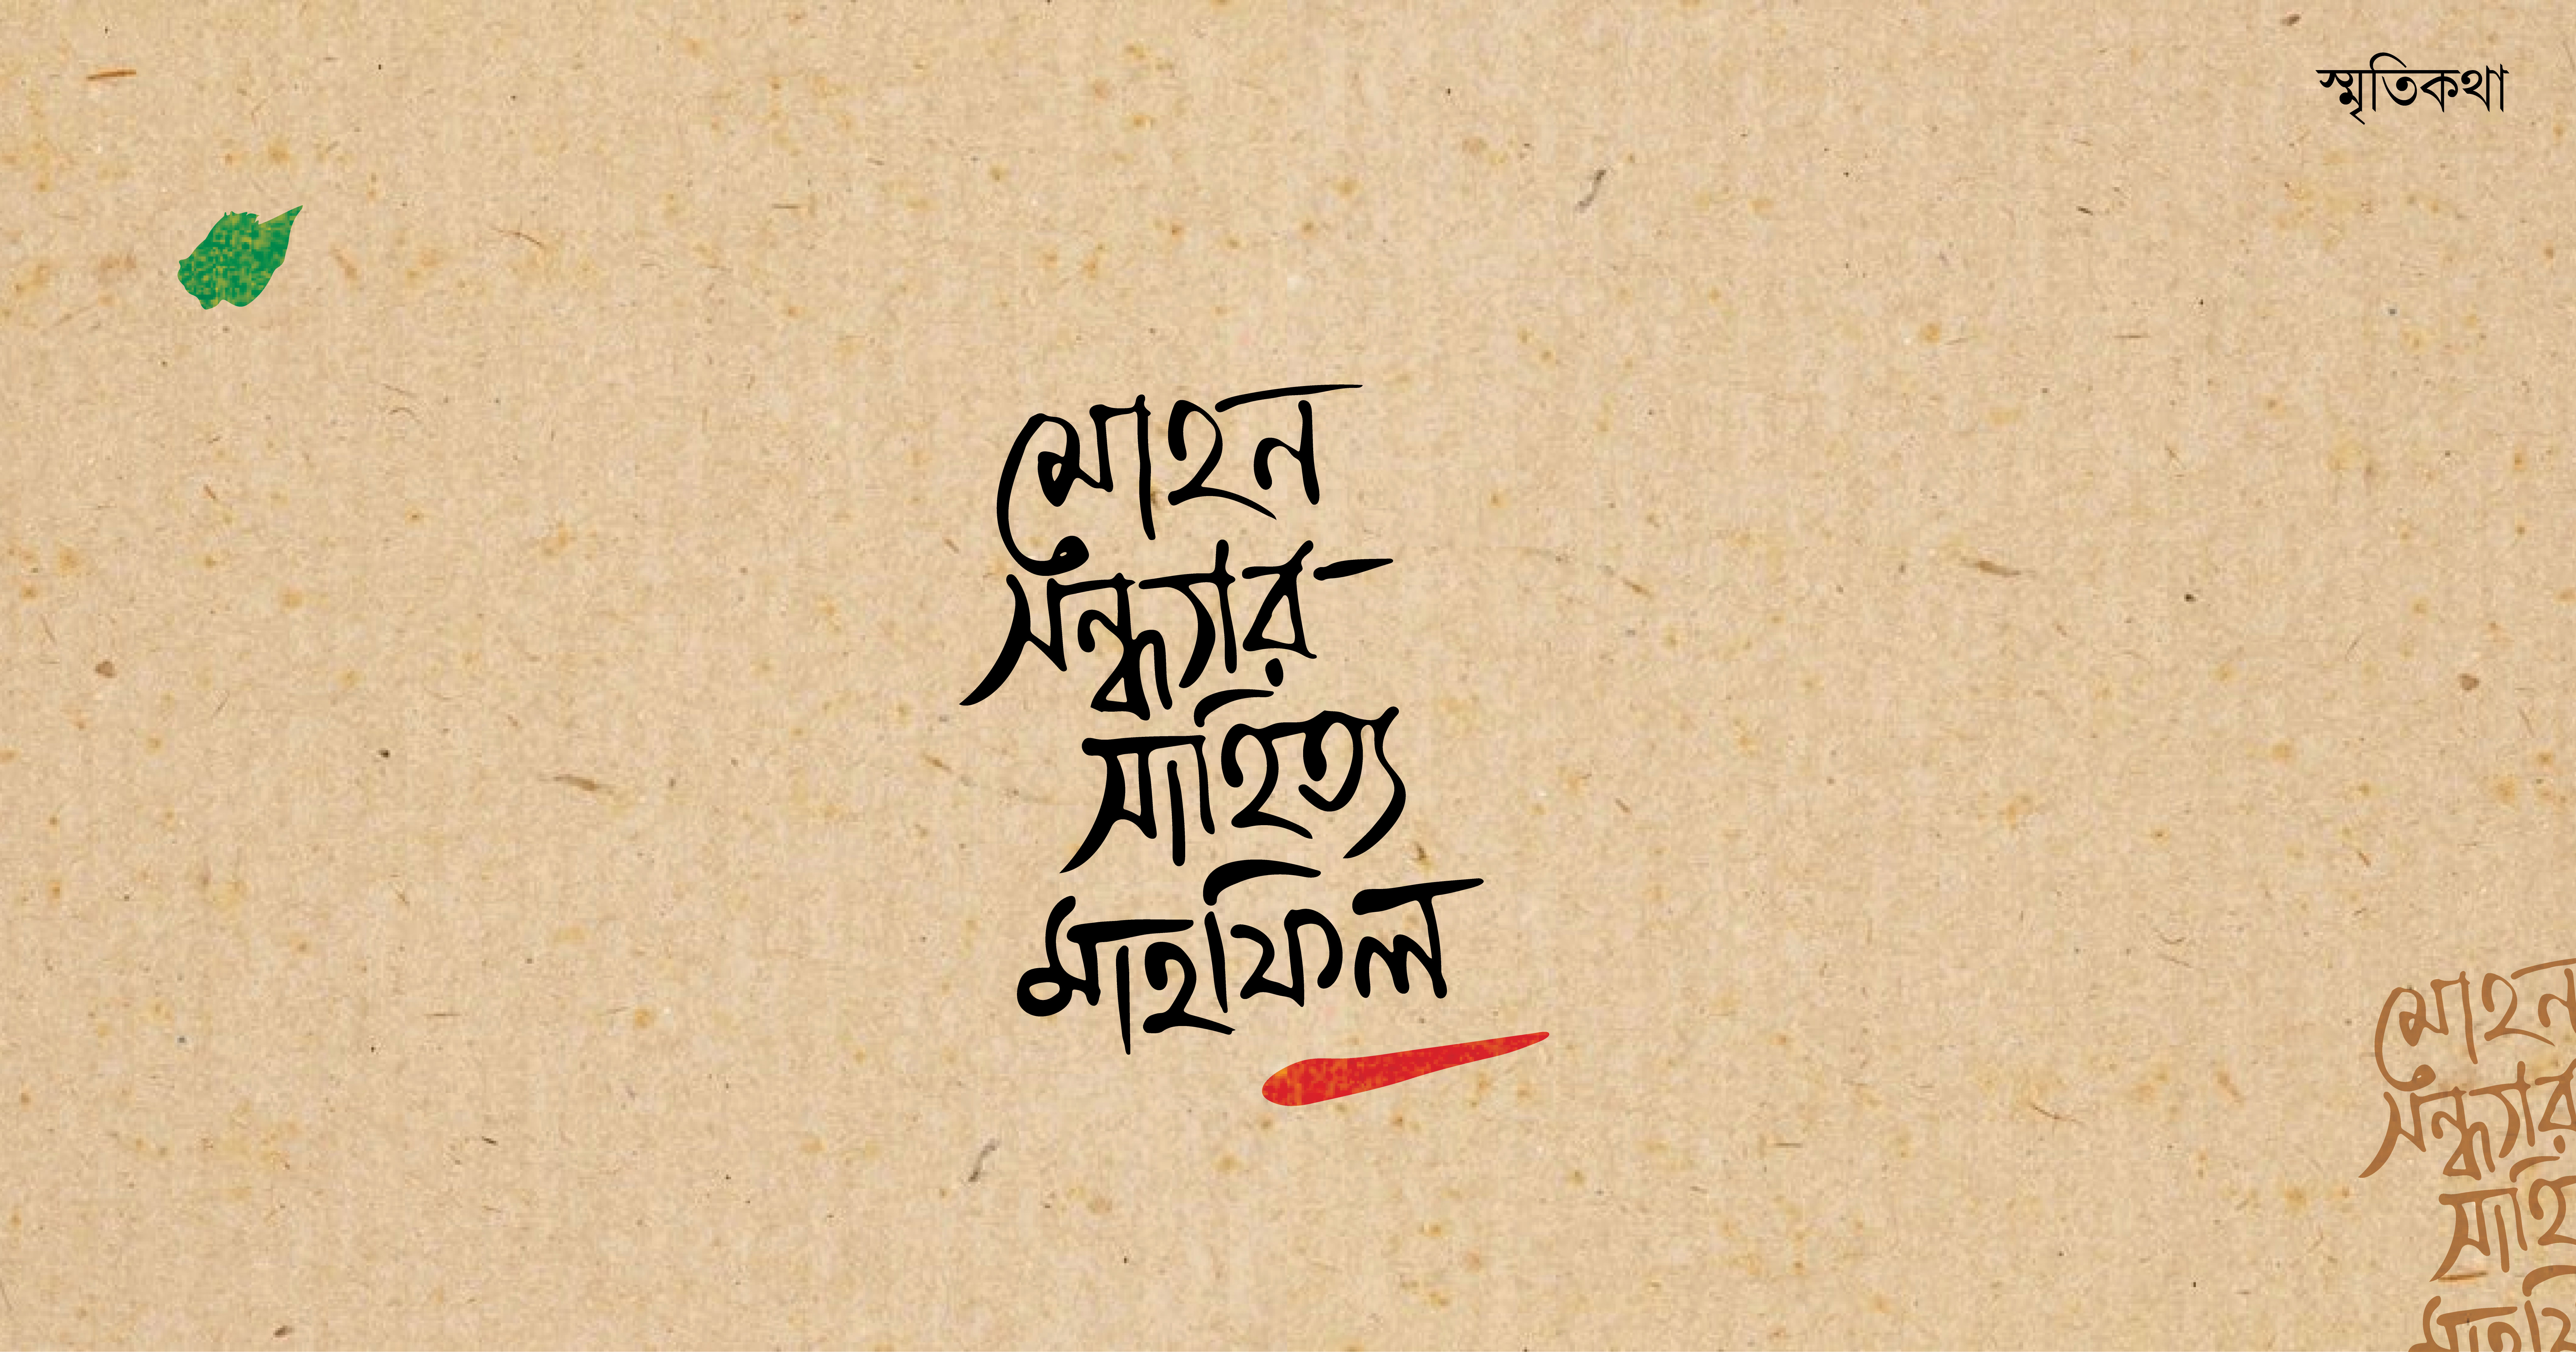 স্মৃতিকথা
মোহন
সন্ধ্যার
সাহিত্য
মাহফিল
মোহন
সন্ধ্যার
সাহি
মাহফি